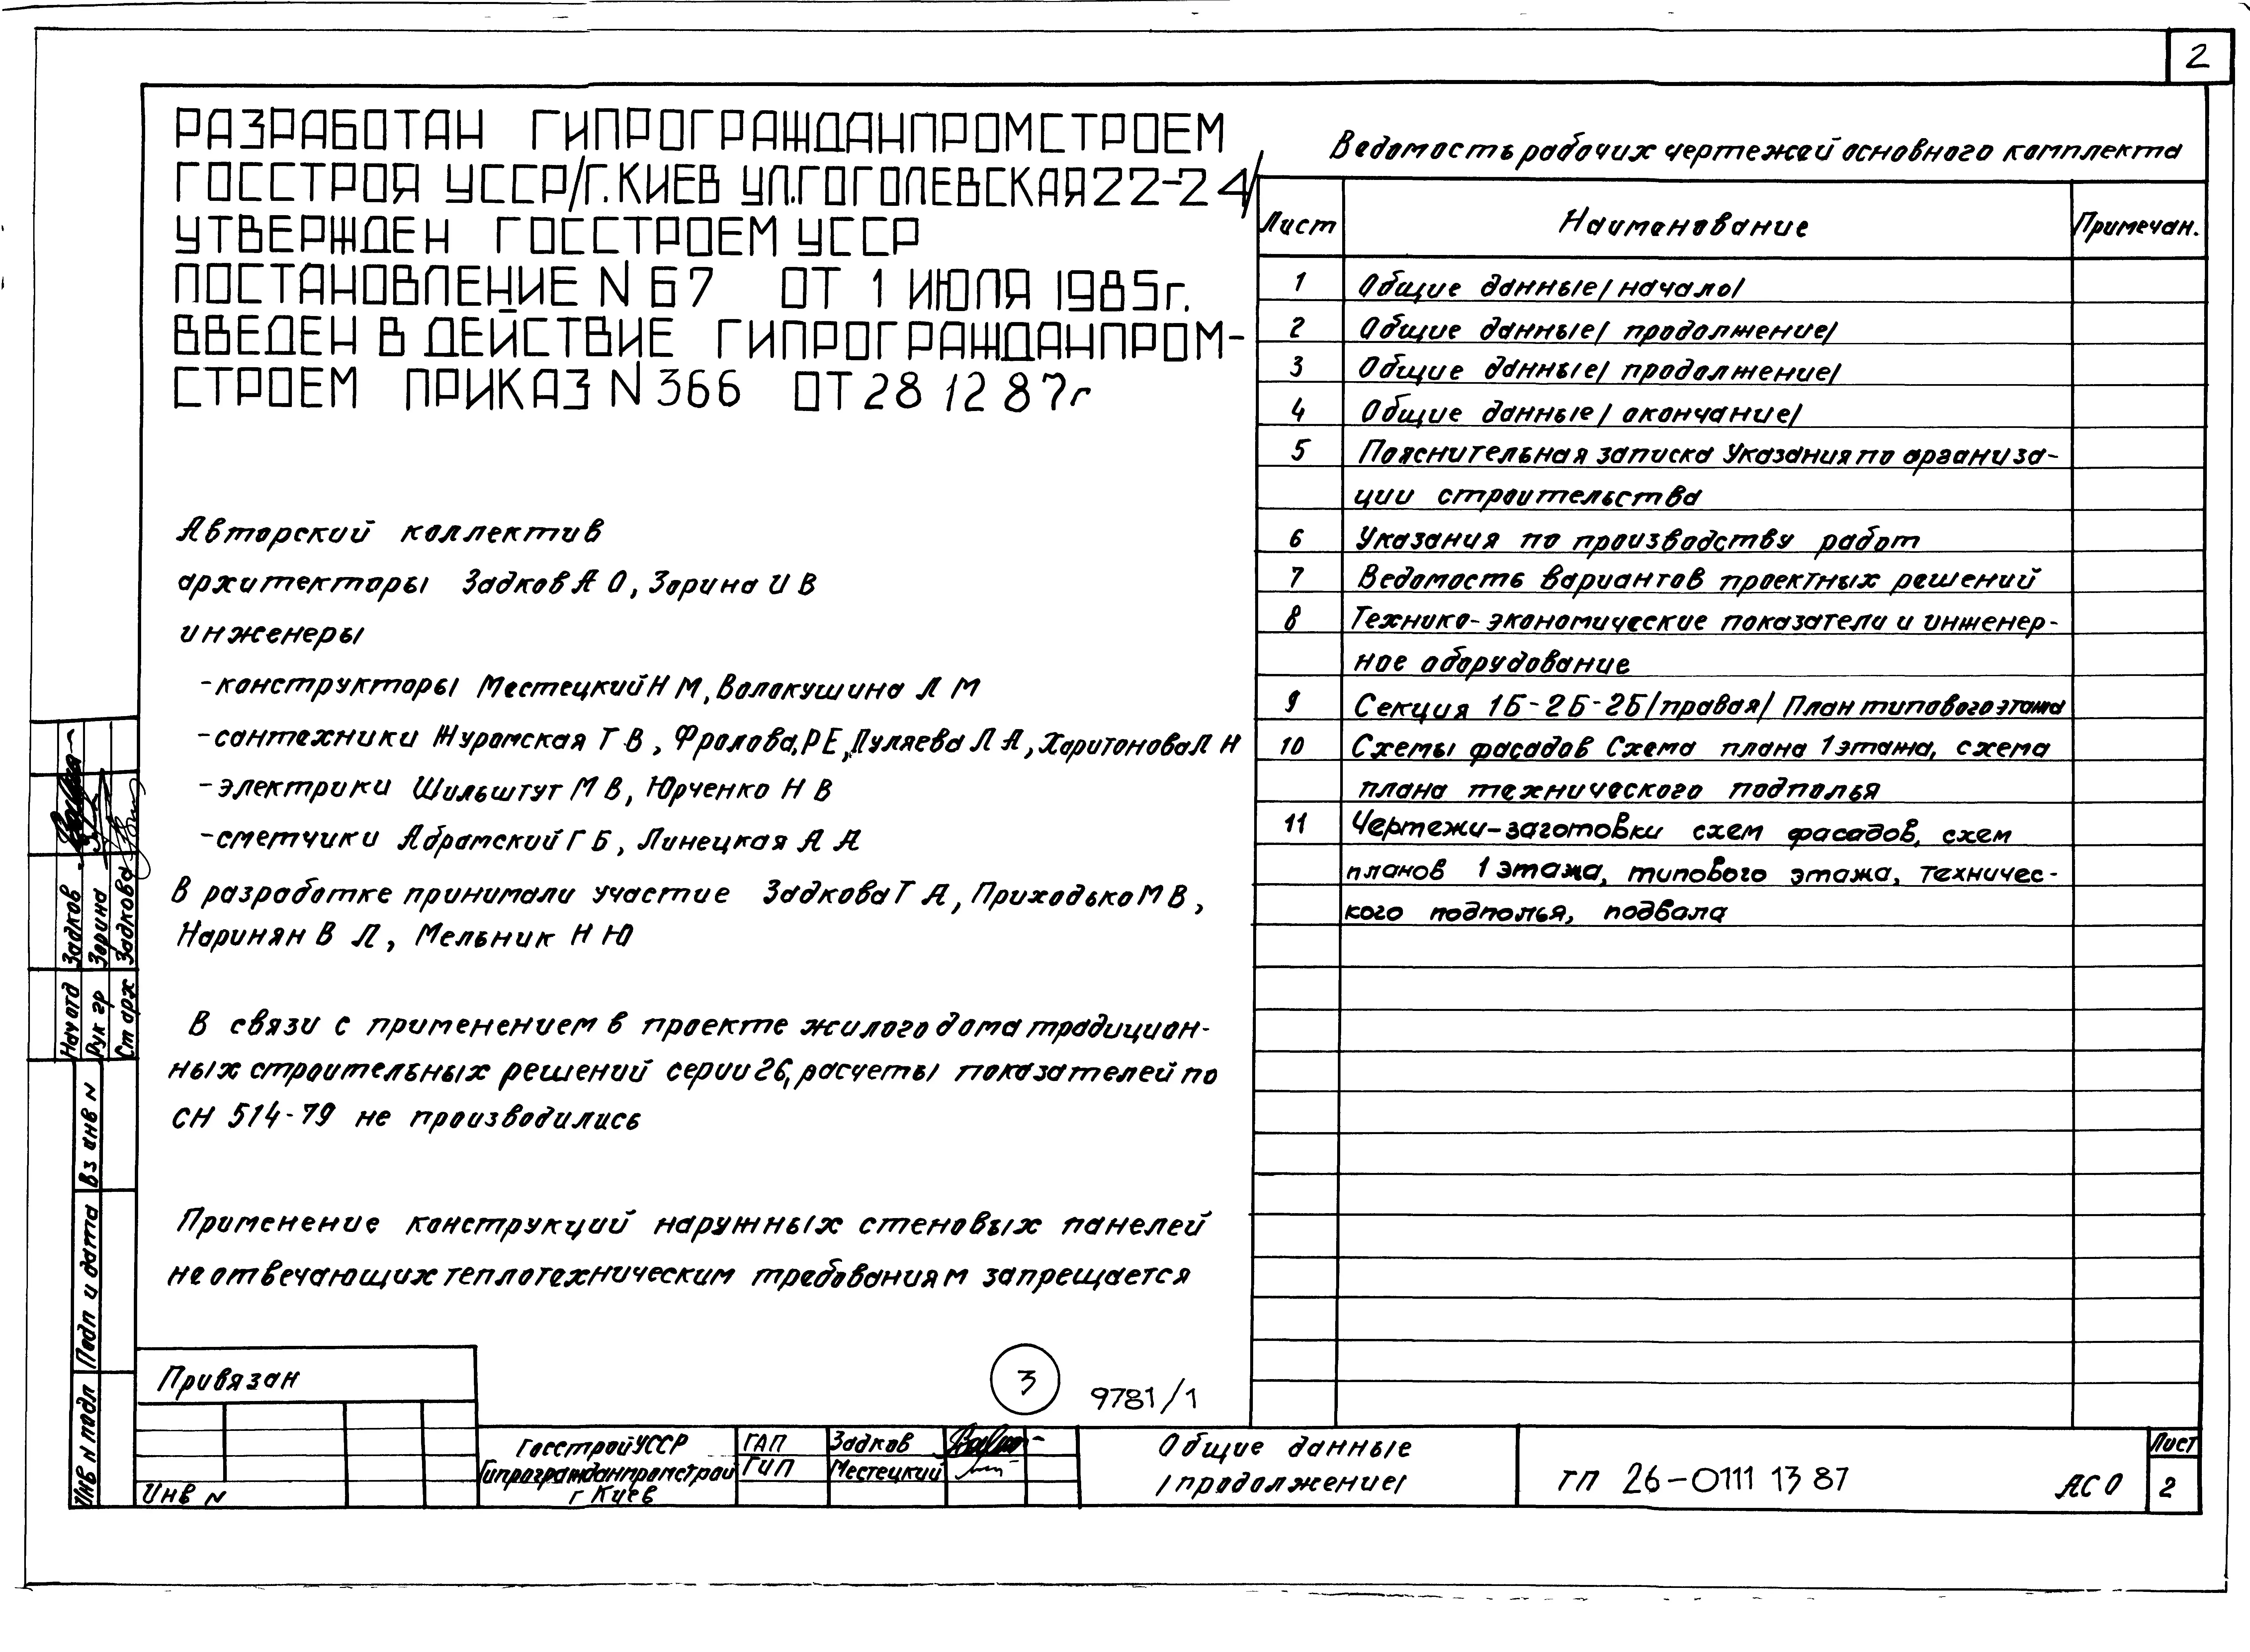 2
РАЗРАБОТАН ГИПРОГРАЖДАНПРОМСТРОЕМ
ГОССТРОЯ УССР/Г.КИЕВ УЛ.ГОГОЛЕВСКАЯ 22-24/
УТВЕРЖДЕН ГОССТРОЕМ УССР
ПОСТАНОВЛЕНИЕ N 67 ОТ 1 ИЮЛЯ 1985г.
ВВЕДЕН В ДЕЙСТВИЕ ГИПРОГРАЖДАНПРОМ-
СТРОЕМ ПРИКАЗ N 366 ОТ 28 12 87г
Авторский коллектив
архитекторы Задков А О, Зорина И В
инженеры
-конструкторы Местецкий Н М, Волокушина Л М
-сантехники Журомская Т В, Фролова, Р Е, Пуляева Л А, Харитонова Л Н
-электрики Шильштут М В, Юрченко Н В
-сметчики Абрамский Г Б, Линецкая А А
В разработке принимали участие Задкова Т А, Приходько М В,
Наринян В Л, Мельник Н Ю
В связи с применением в проекте жилого дома традицион-
ных строительных решений серии 26, расчеты показателей по
СН 514-79 не производились
Применение конструкций наружных стеновых панелей
не отвечающих теплотехническим требованиям запрещается
Ведомость рабочих чертежей основного комплекта
Лист Наименование Примечан.
1 Общие данные /начало/
2 Общие данные / продолжение/
3 Общие данные / продолжение/
4 Общие данные / окончание/
5 Пояснительная записка Указания по организа-
ции строительства
6 Указания по производству работ
7 Ведомость вариантов проектных решений
8 Технико-экономические показатели и инженер-
ное оборудование
9 Секция 1Б-2Б-2Б/правая/ План типового этажа
10 Схемы фасадов Схема плана 1 этажа, схема
плана технического подполья
11 Чертежи-заготовки схем фасадов, схем
планов 1 этажа, типового этажа, техничес-
кого подполья, подвала
Нач отд Задков
Рук гр Зорина
Ст арх Задкова
Вз инв N
Подп и дата
Инв N подл
Привязан
Инв N
3
9781/1
Госстрой УССР
Гипрогражданпромстрой
г Киев
ГАП Задков
ГИП Местецкий
Общие данные
/продолжение/
ТП 26-0111 13 87
АС 0
Лист
2